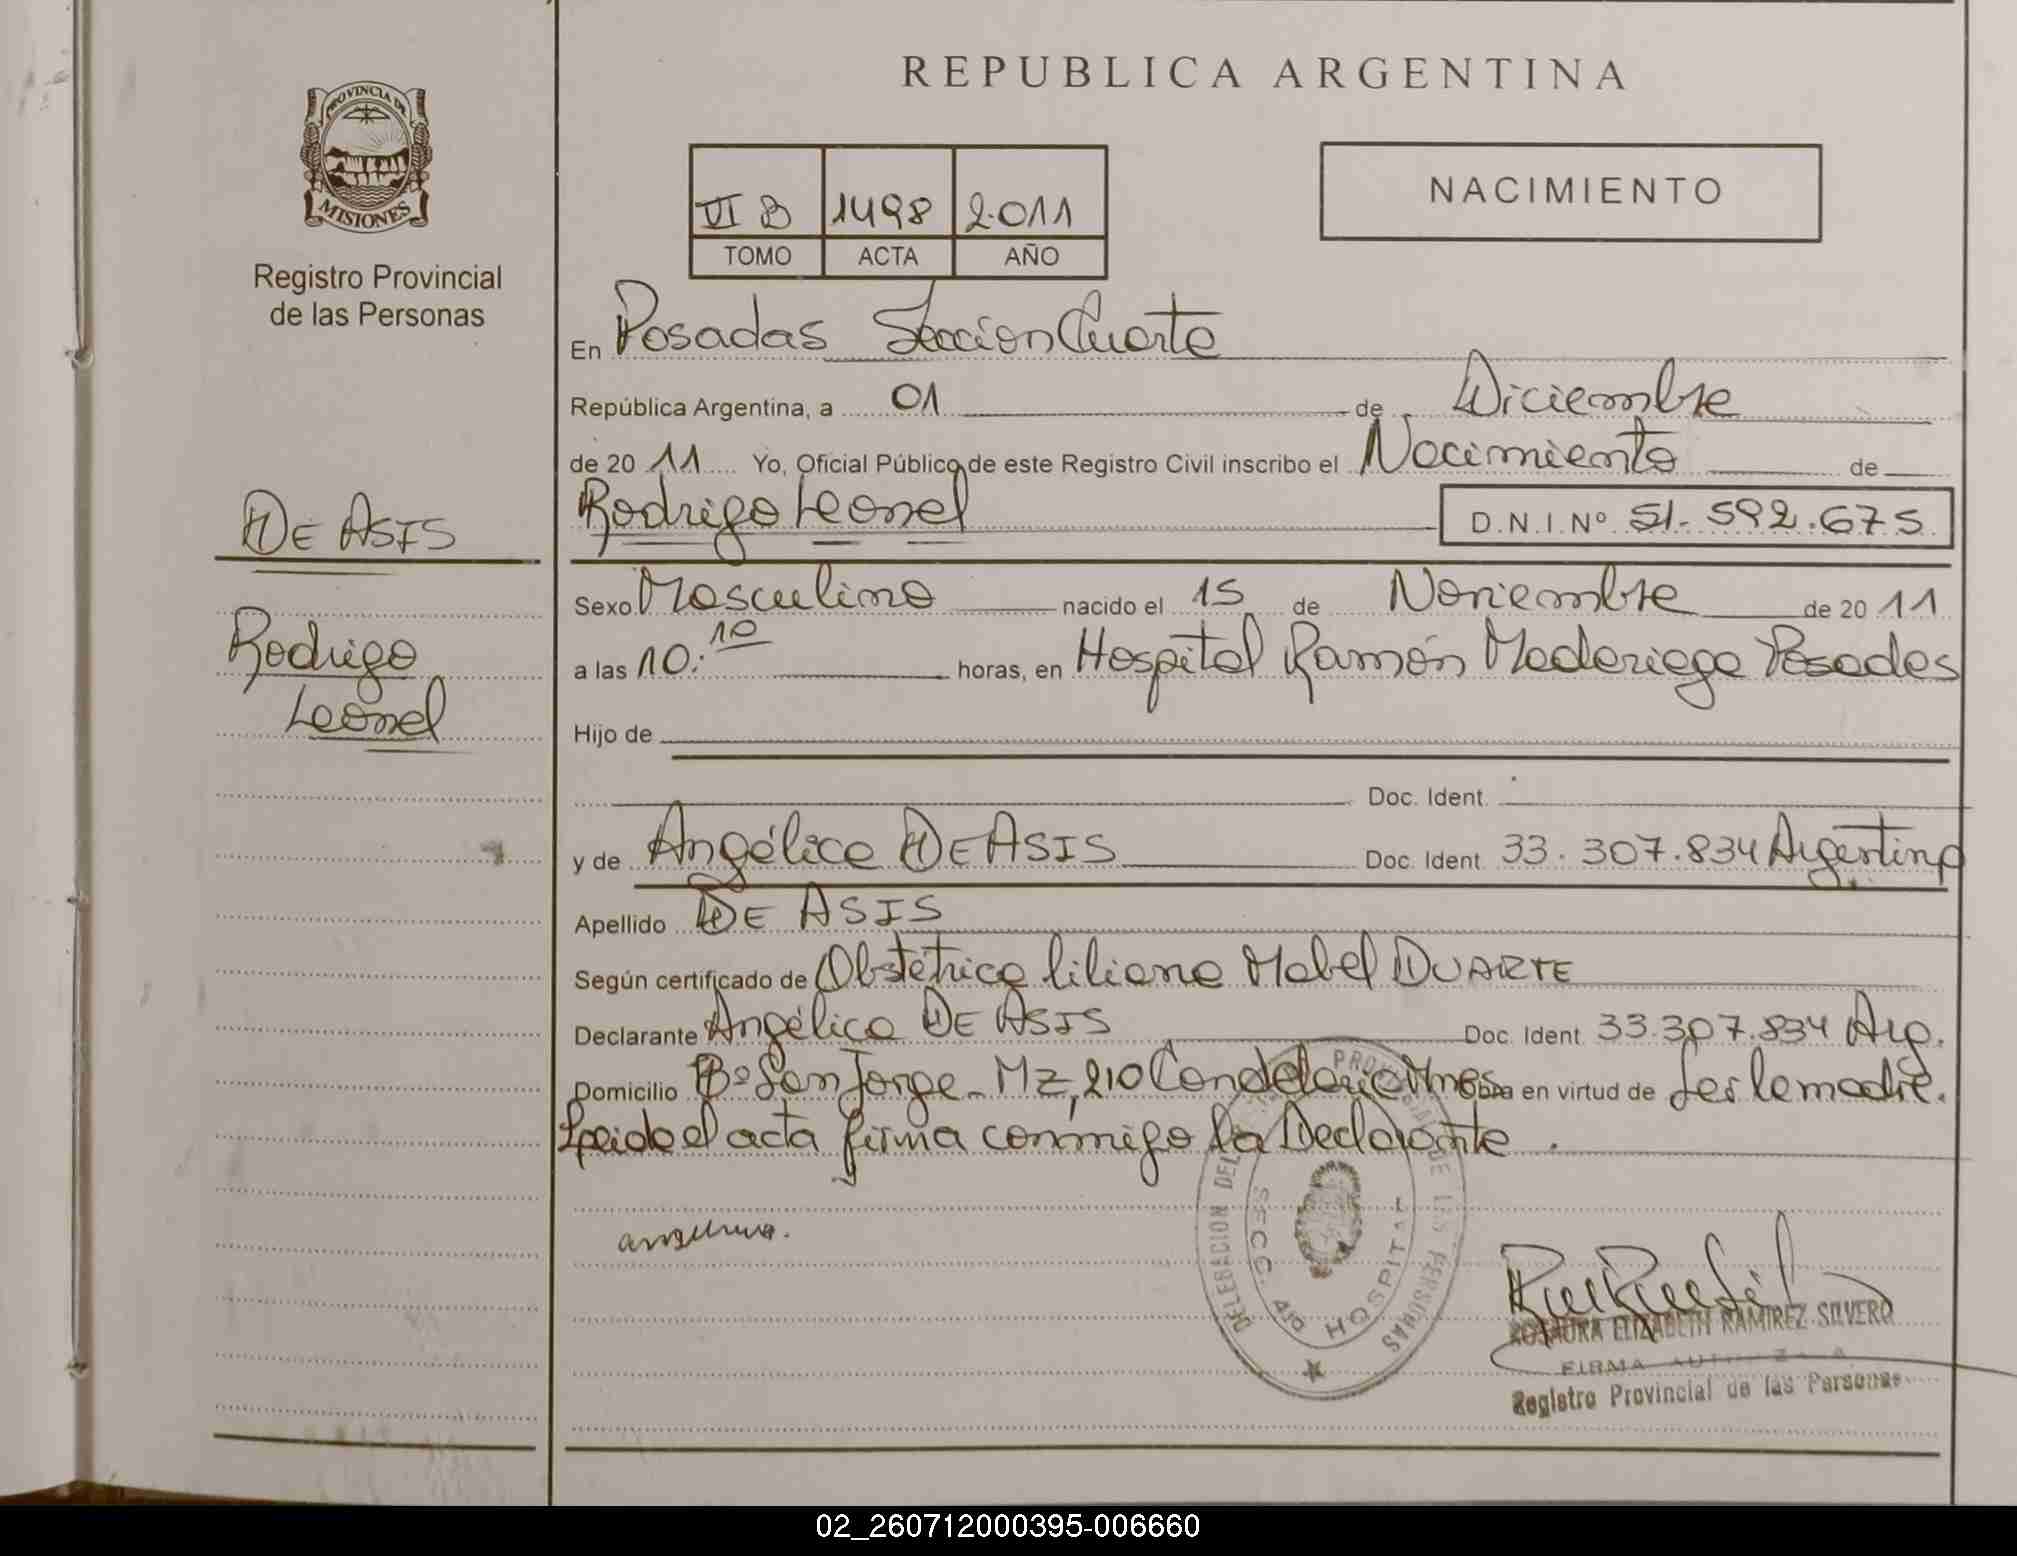 REPUBLICA ARGENTINA
PROVINCIA DE
MISIONES
Registro Provincial
de las Personas
VI B 1498 2.011
TOMO ACTA AÑO
NACIMIENTO
En Posadas Sección Cuarta
República Argentina, a 01 de Diciembre
de 20 11 Yo, Oficial Público de este Registro Civil inscribo el Nacimiento de
Rodrigo Leonel D.N.I.Nº 51.592.675
DE ASIS
Rodrigo
Leonel
Sexo Masculino nacido el 15 de Noviembre de 20 11
a las 10:10 horas, en Hospital Ramón Madariaga Posadas
Hijo de
Doc. Ident.
y de Angélica DE ASIS Doc. Ident. 33.307.834 Argentina
Apellido DE ASIS
Según certificado de Obstétrica Liliana Mabel DUARTE
Declarante Angélica DE ASIS Doc. Ident. 33.307.834 Arg.
Domicilio Bº San Jorge - Mz, 210 Candelaria Mnes Obra en virtud de ser la madre.
Leida el acta firma conmigo la Declarante.
DELEGACION DEL REGISTRO PROVINCIAL DE LAS PERSONAS
SECC. 4ta HOSPITAL
ROSAURA ELIZABETH RAMIREZ SILVERO
FIRMA AUTORIZADA
Registro Provincial de las Personas
02_260712000395-006660